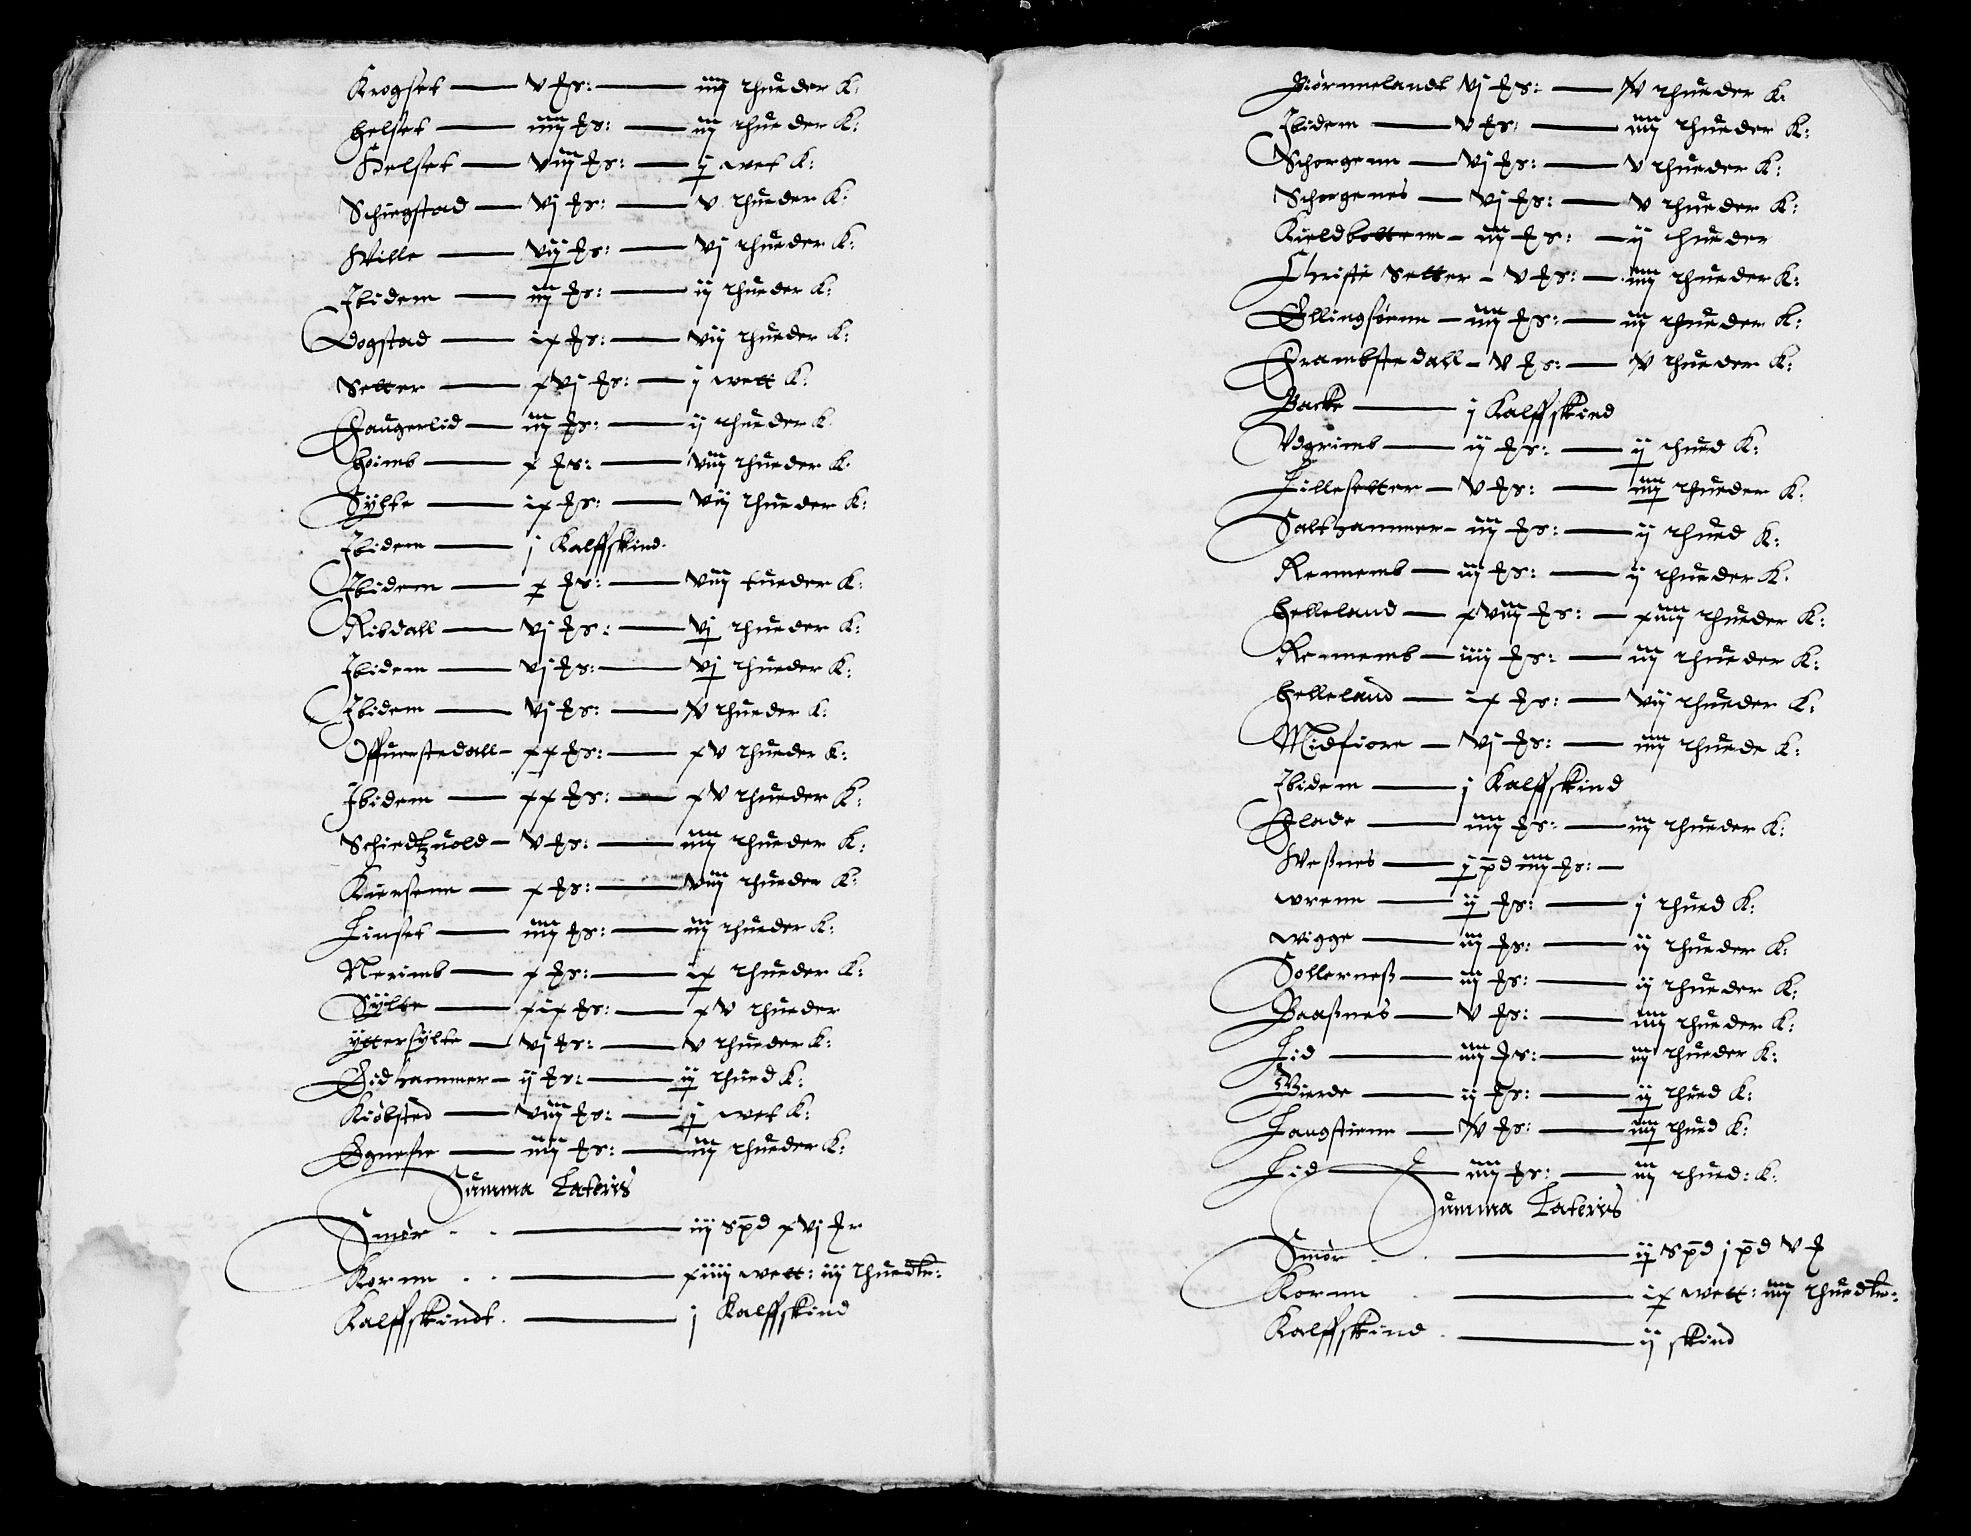 Krogset — v ℔s: — iiij thueder K:
Helset — iiij ℔s: — iij thueder K:
Helset — viij ℔s: — j wet K:
Schiegstad — vj ℔s: — v thueder K:
Wille — vij ℔s: — vj thueder K:
Ibidem — iij ℔s: — ij thueder K:
Dogstad — ix ℔s: — vij thueder K:
Setter — xvj ℔s: — j wett K:
Haugerlid — iij ℔s: — ij thueder K
Hoimb — x ℔s: — viij thueder K:
Sylte — ix ℔s: — vij thueder K:
Ibidem — j Kalffskind.
Ibidem — x ℔s: — viij tueder K:
Ribdall — vj ℔s: — vj thueder K:
Ibidem — vj ℔s: — vj thueder K:
Ibidem — vj ℔s: — v thueder K:
Offuerstedall — xx ℔s: — xv thueder K:
Ibidem — xx ℔s: — xv thueder K:
Schiedtzuold — v ℔s: — iiij thueder K:
Kuersem — x ℔s: — viij thueder K:
Linset — iiij ℔s: — iij thueder K:
Nerimb — x ℔s: — ix thueder K:
Sylte — xix ℔s: — xv thueder
yttersylte — vj ℔s: — v thueder K:
Eidhammer — ij ℔s: — ij thued K:
Kiøbsted — viij ℔s: — j wet K:
Øgnesie — iiij ℔s: — iij thueder K:
Summa Lateris
Smør — iij spd xvj ℔r
Kornn — xiiij wett: iij thuedkr:
Kalffskindt. — j Kalffskind
Biørnnelandt vj ℔s: — v thueder K:
Ibidem — v ℔s: — iiij thueder K:
Schorgenn — vj ℔s: — v thueder K:
Schorgenes — vj ℔s: — v thueder K:
Kieldbottenn — iij ℔s: — ij thueder
Christi Setter — v ℔s: — iiij thueder K:
Ellingsøenn — iiij ℔s: — iij thueder K:
Frambstedall — v ℔s: — v thueder K:
Backe — j Kalffskind
Vdgrimb — ij ℔s: — ij thued K:
Lillesetter — v ℔s: — iiij thueder K:
Salthammer — iij ℔s: — ij thued K:
Rennemb — iij ℔s: — ij thueder K:
Helleland — xviij ℔s: — xiiij thueder K:
Rennemb — iiij ℔s: — iij thueder K:
Helleland — ix ℔s: — vij thueder K:
Midfiore — vj ℔s: — iiij thuede K:
Ibidem — j Kalffskind
Flade — iiij ℔s: — iij thueder K:
Weßnes — j pd iiij ℔s: —
wrenn — ij ℔s: — j thued K:
wigge — iij ℔s: — ij thueder K:
Sollerneß — iij ℔s: — ij thueder K:
Baaßnes — v ℔s: — iiij thueder K:
Lid — iiij ℔s: — iij thueder K:
Wierde — ij ℔s: — ij thued K:
Langstienn — v ℔s: — iiij thued K:
Lid — iiij ℔s: — iij thued: K:
Summa Lateris
Smør — ij spd j pd v ℔
Kornn — ix wett: iiij thuedkr:
Kalffskind. — ij skind